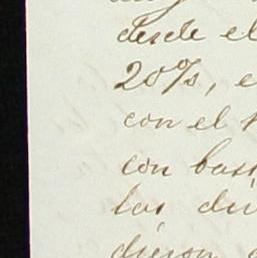 desde el
20%, e
con el
con bas
las di
dieron